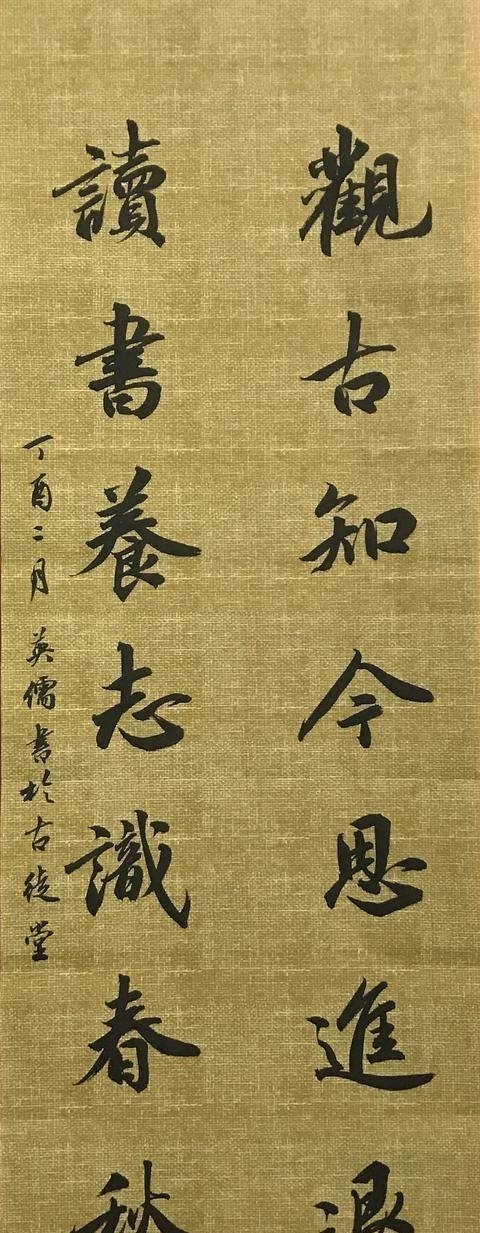 觀古知今思進退
讀書養志識春秋
丁酉二月英儒書於古堂